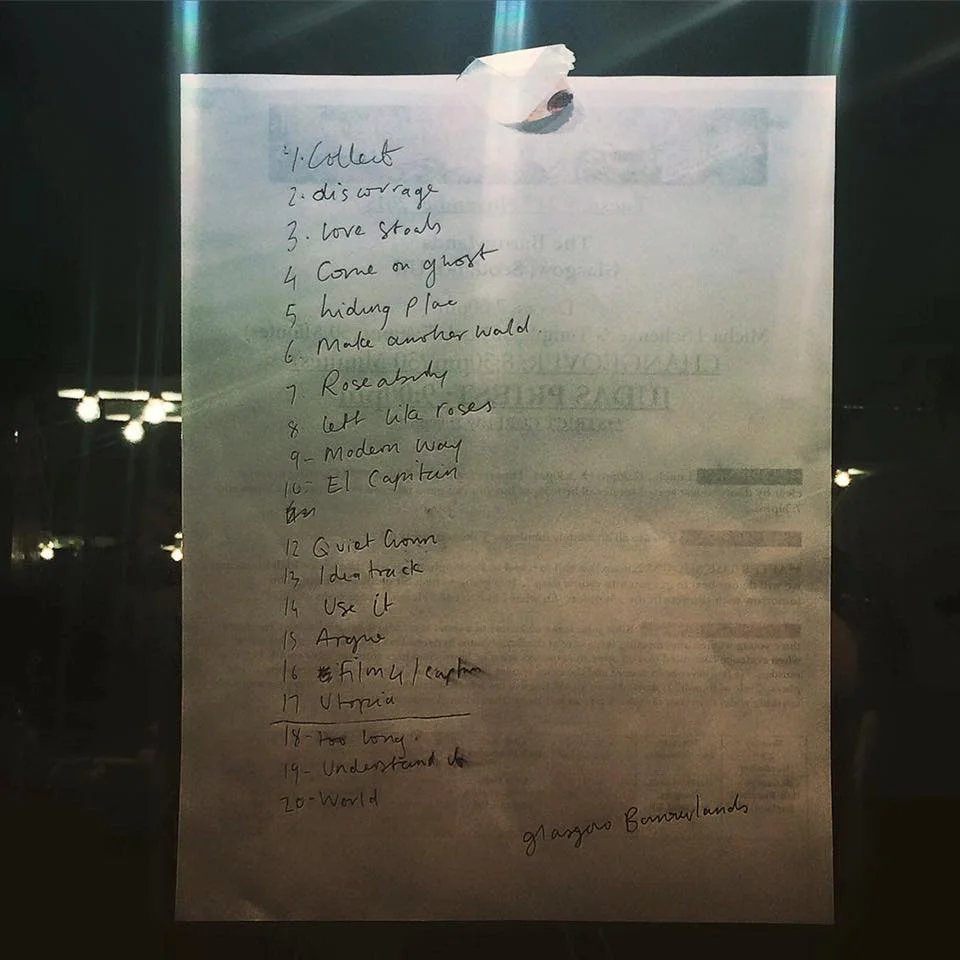 1. Collect
2. discourage
3. love steals
4 Come on ghost
5 hiding place
6. Make another world.
7 Roseability
8 left like roses
9 - Modern Way
10 - El Capitan
12 Quiet Crown
13 Idea track
14 Use it
15 Argue
16 Film 4 / captain
17 Utopia
18 - too long.
19 - Understand it
20 - World
glasgow Barrowlands